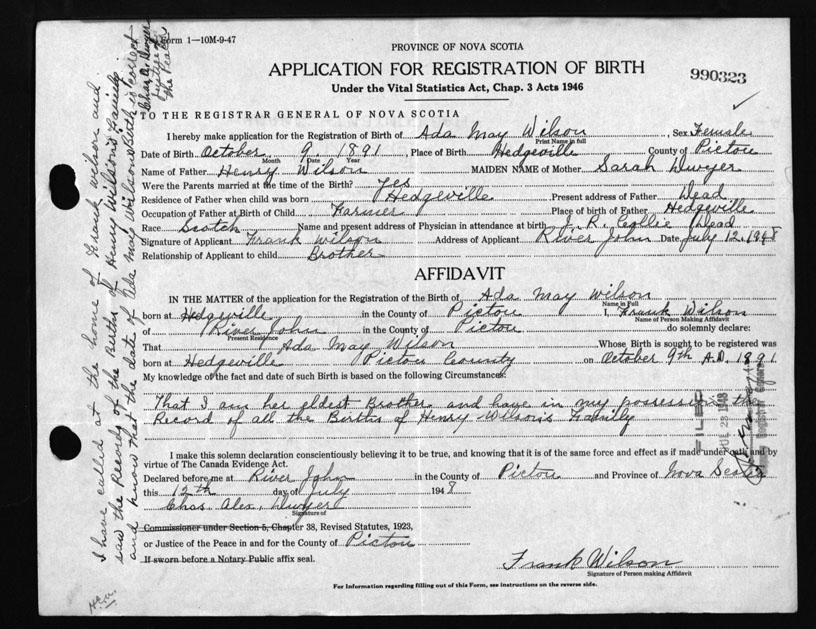 Form 1—10M-9-47
PROVINCE OF NOVA SCOTIA
APPLICATION FOR REGISTRATION OF BIRTH
990323
Under the Vital Statistics Act, Chap. 3 Acts 1946
TO THE REGISTRAR GENERAL OF NOVA SCOTIA
I hereby make application for the Registration of Birth of Ada May Wilson, Sex Female
Print Name in full
Date of Birth October 9, 1891, Place of Birth Hedgeville County of Pictou
Month Date Year
Name of Father Henry Wilson MAIDEN NAME of Mother Sarah Dwyer
Were the Parents married at the time of the Birth? Yes
Residence of Father when child was born Hedgeville Present address of Father Dead
Occupation of Father at Birth of Child Farmer Place of birth of Father Hedgeville
Race Scotch Name and present address of Physician in attendance at birth J. R. Collie Dead
Signature of Applicant Frank Wilson Address of Applicant River John Date July 12, 1948
Relationship of Applicant to child Brother
AFFIDAVIT
IN THE MATTER of the application for the Registration of the Birth of Ada May Wilson
Name in Full
born at Hedgeville in the County of Pictou I, Frank Wilson
Name of Person Making Affidavit
of River John in the County of Pictou do solemnly declare:
Present Residence
That Ada May Wilson Whose Birth is sought to be registered was
born at Hedgeville Pictou County on October 9th A.D. 1891
My knowledge of the fact and date of such Birth is based on the following Circumstances:
That I am her eldest Brother and have in my possession the
Record of all the Births of Henry Wilson's Family
I make this solemn declaration conscientiously believing it to be true, and knowing that it is of the same force and effect as if made under oath and by
virtue of The Canada Evidence Act.
Declared before me at River John in the County of Pictou and Province of Nova Scotia
this 12th day of July 1948
Chas. Alex. Dwyer
Signature of
Commissioner under Section 5, Chapter 38, Revised Statutes, 1923,
or Justice of the Peace in and for the County of Pictou
If sworn before a Notary Public affix seal.
Frank Wilson
Signature of Person making Affidavit
For Information regarding filling out of this Form, see instructions on the reverse side.
I have called at the home of Frank Wilson and
saw the Records of the Births of Henry Wilson's Family
and know that the date of Ada May Wilson Birth is correct
Chas A. Dwyer
Justice of
the Peace
FILED
JUL 23 1948